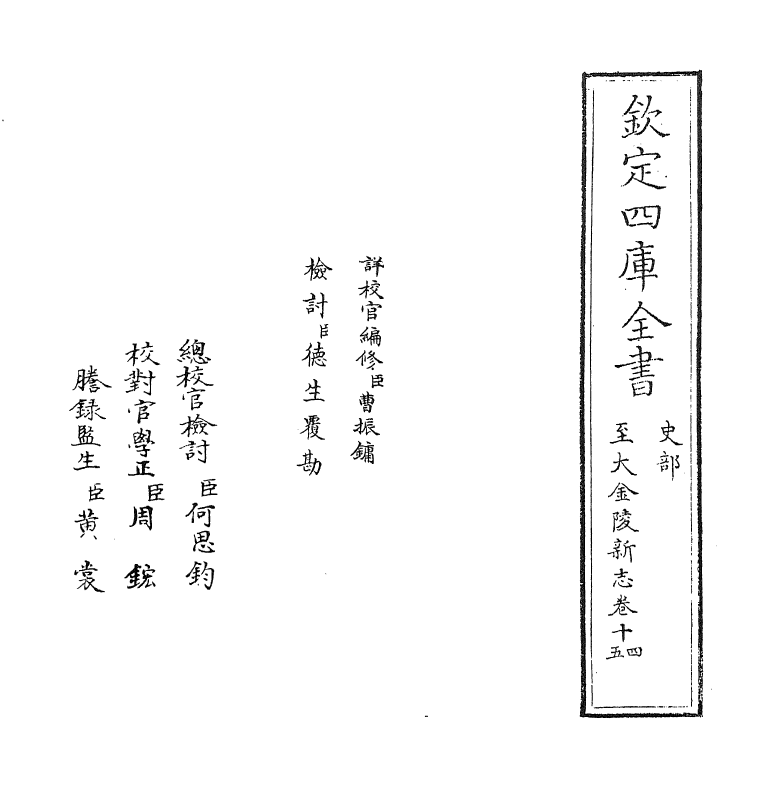 欽定四庫全書
史部
至大金陵新志卷十四五
詳校官編修臣曹振鏞
檢討臣德生覆勘
總校官檢討臣何思鈞
校對官學正臣周鋐
謄錄監生臣黄裳